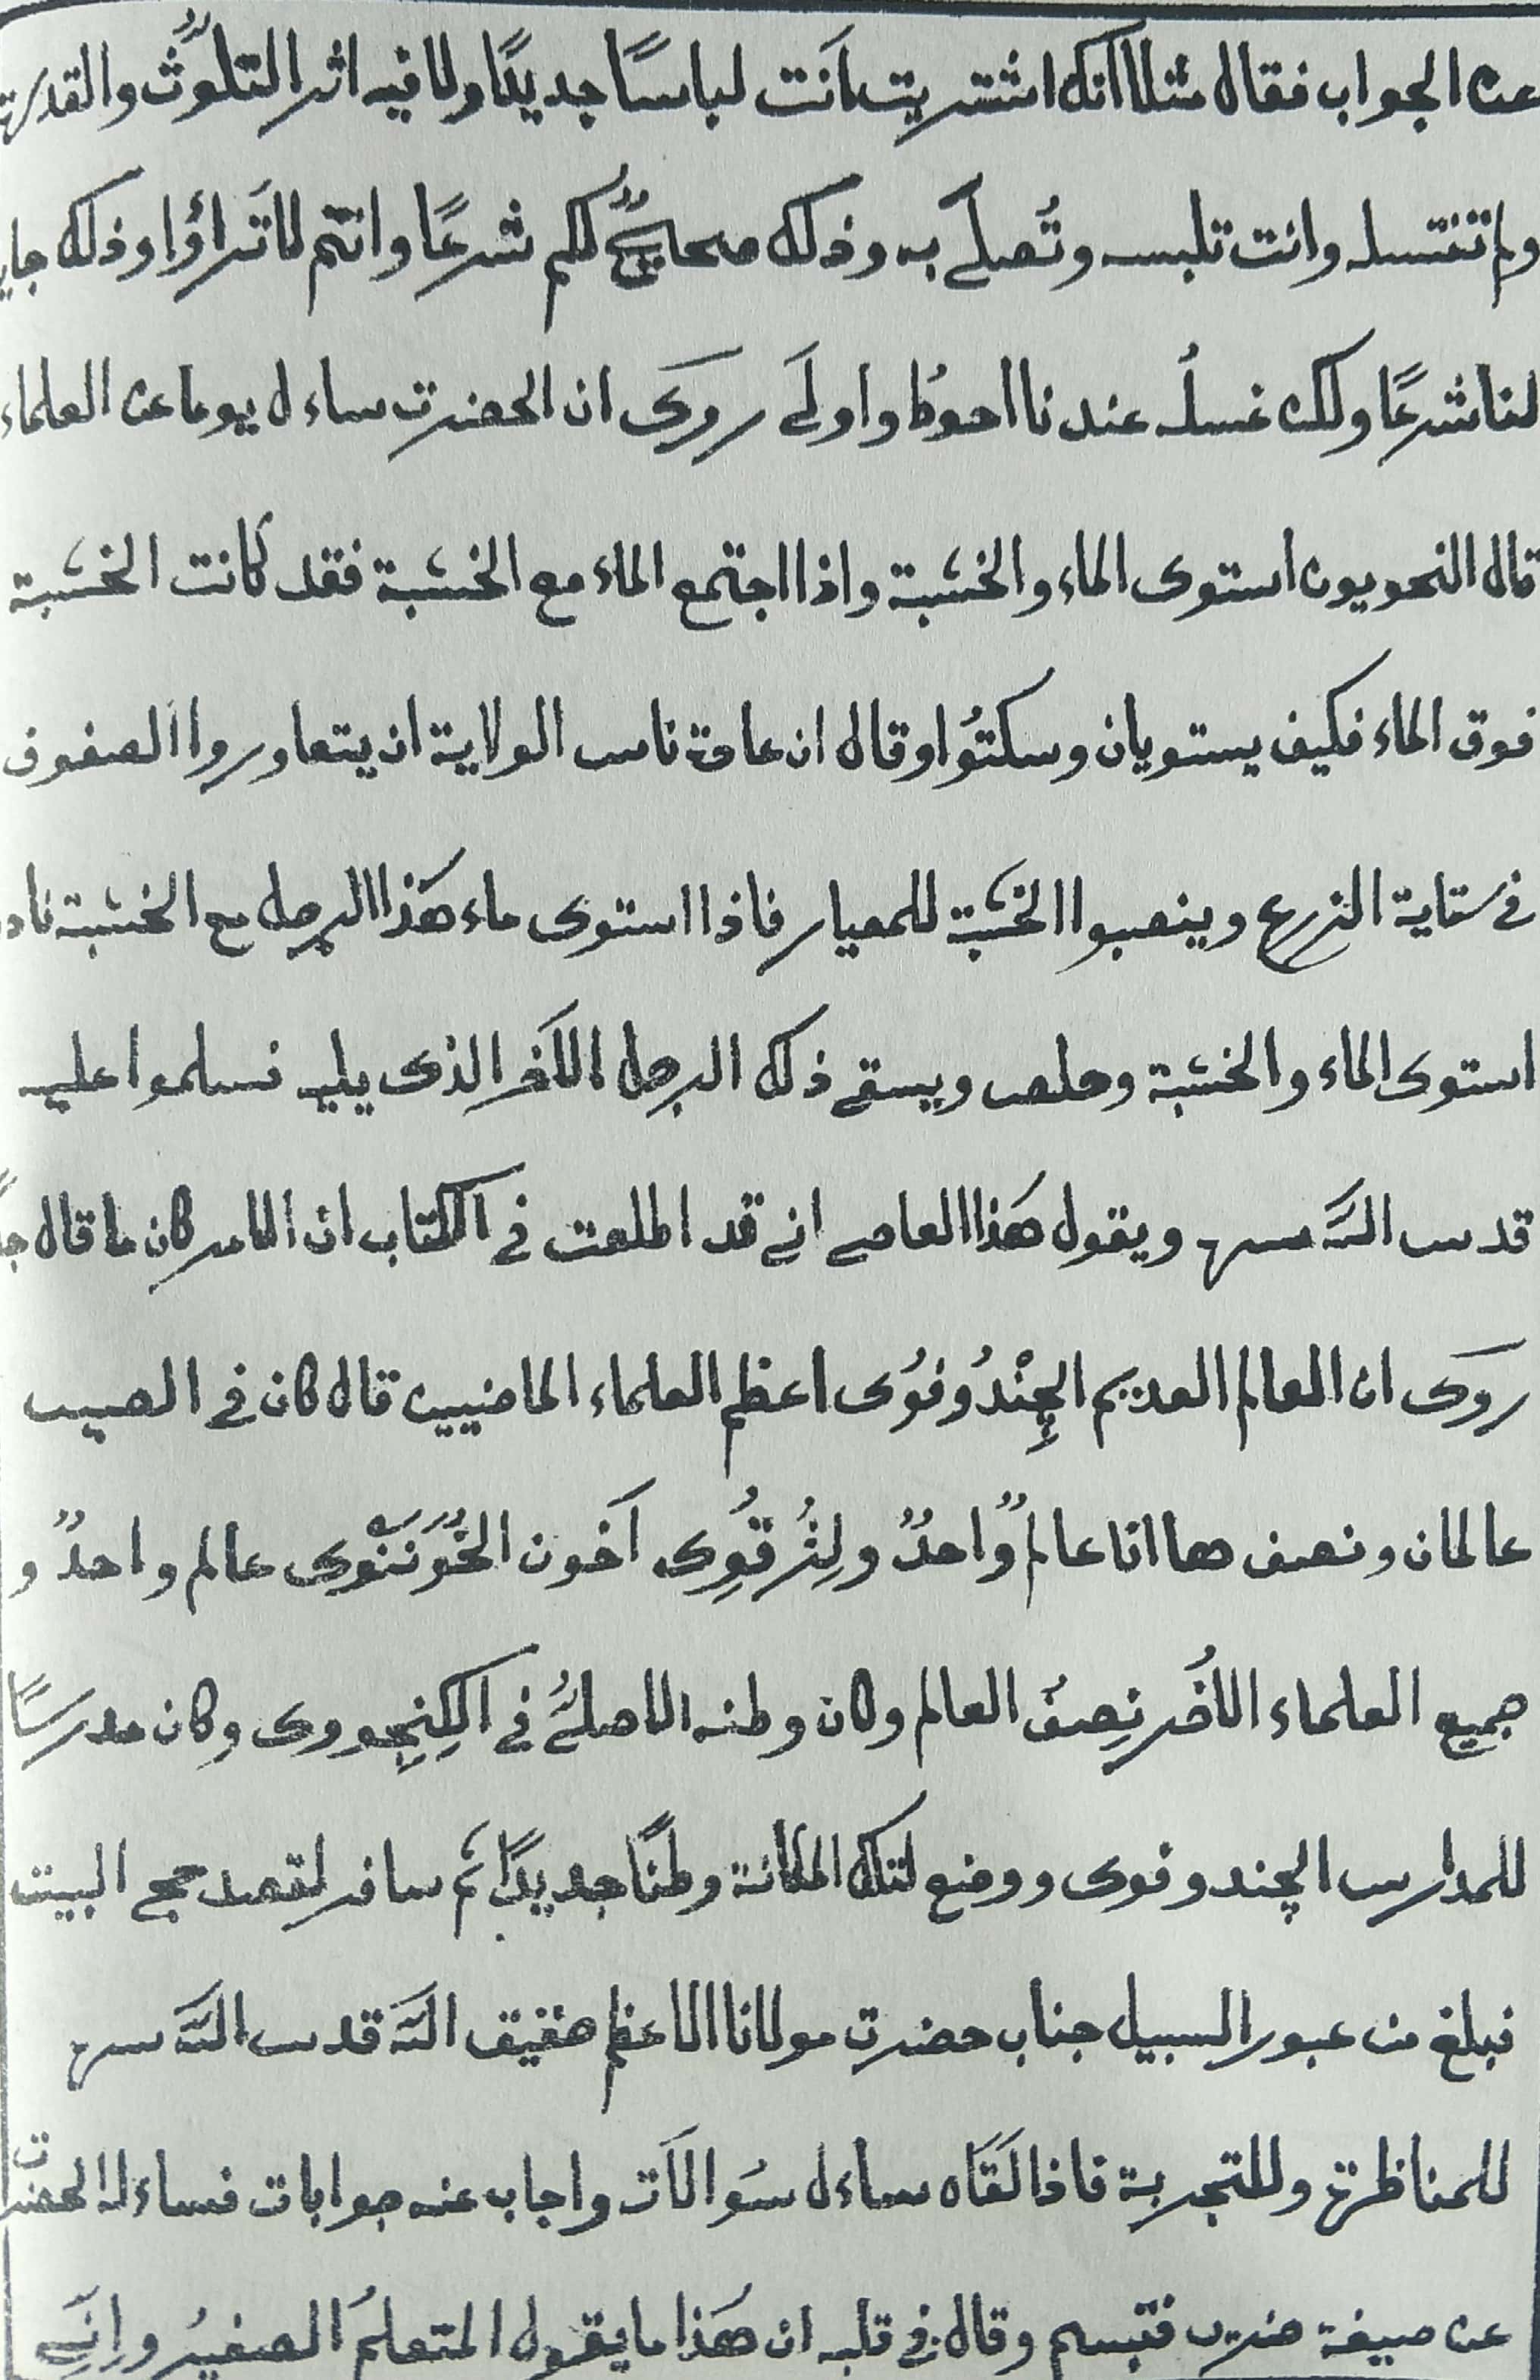 عن الجواب فقال مثلا انك اشتريت انت لباسًا جديدًا ولا فيه اثر التلوُّث والقذرة
ولم تغتسله وانت تلبسه وتُصلّى به وذلك صحايحٌ لكم شرعًا وانتم لا تَراؤا وذلك جايز
لنا شرعًا ولكن غسلُه عندنا احوطُ واولَى روَى ان الحضرت ساءل يوما عن العلماء
قال النحويون استوى الماء والخشبة واذا اجتمع الماء مع الخشبة فقد كانت الخشبة
فوق الماء فكيف يستويان وسكتوُا وقال ان عادة ناس الولاية ان يتعاوروا الصفوف
فى سقاية الزرع وينصبوا الخشَبة للمعيار فاذا استوى ماء هَذا الرجل مع الخشبة نادى
استوى الماء والخشبة وخلص ويسقى ذلك الرجل الاَخر الذى يليه فسلموا عليه
قدس اللّه سره ويقول هَذا العاصى انى قد اطلعت فى الكتاب ان الامر كان ما قال
روَى ان العالم العديم الجِنْدُوفوُى اعظم العلماء الماضيين قال كان فى الصين
عالمان ونصف هما انا عالمٌ واحدٌ ولِنُرقُوِى آخون الخُوُنَنْوى عالم واحدٌ و
جميع العلماء الاُخَر نِصفُ العالم وكان وطنه الاصلىُّ فى الكِنِجووى وكان مدرسًا
للمدارس الچندوفوى ووضع لتلك المكانة وطنًا جديدًا ثم سافر لقصد حج البيت
فبلغ من عبور السبيل جناب حضرت مولانا الاعظم حقيق اللّه قدس اللّه سره
للمناظرة وللتجربة فاذا لَقَاه ساءل سَوالاَت واجاب عنه جوابات فساءله الحضرت
عن صيغة ضرب فتبسم وقال فى قلبه ان هَذا ما يقول المتعلمُ الصغيرُ وانّى